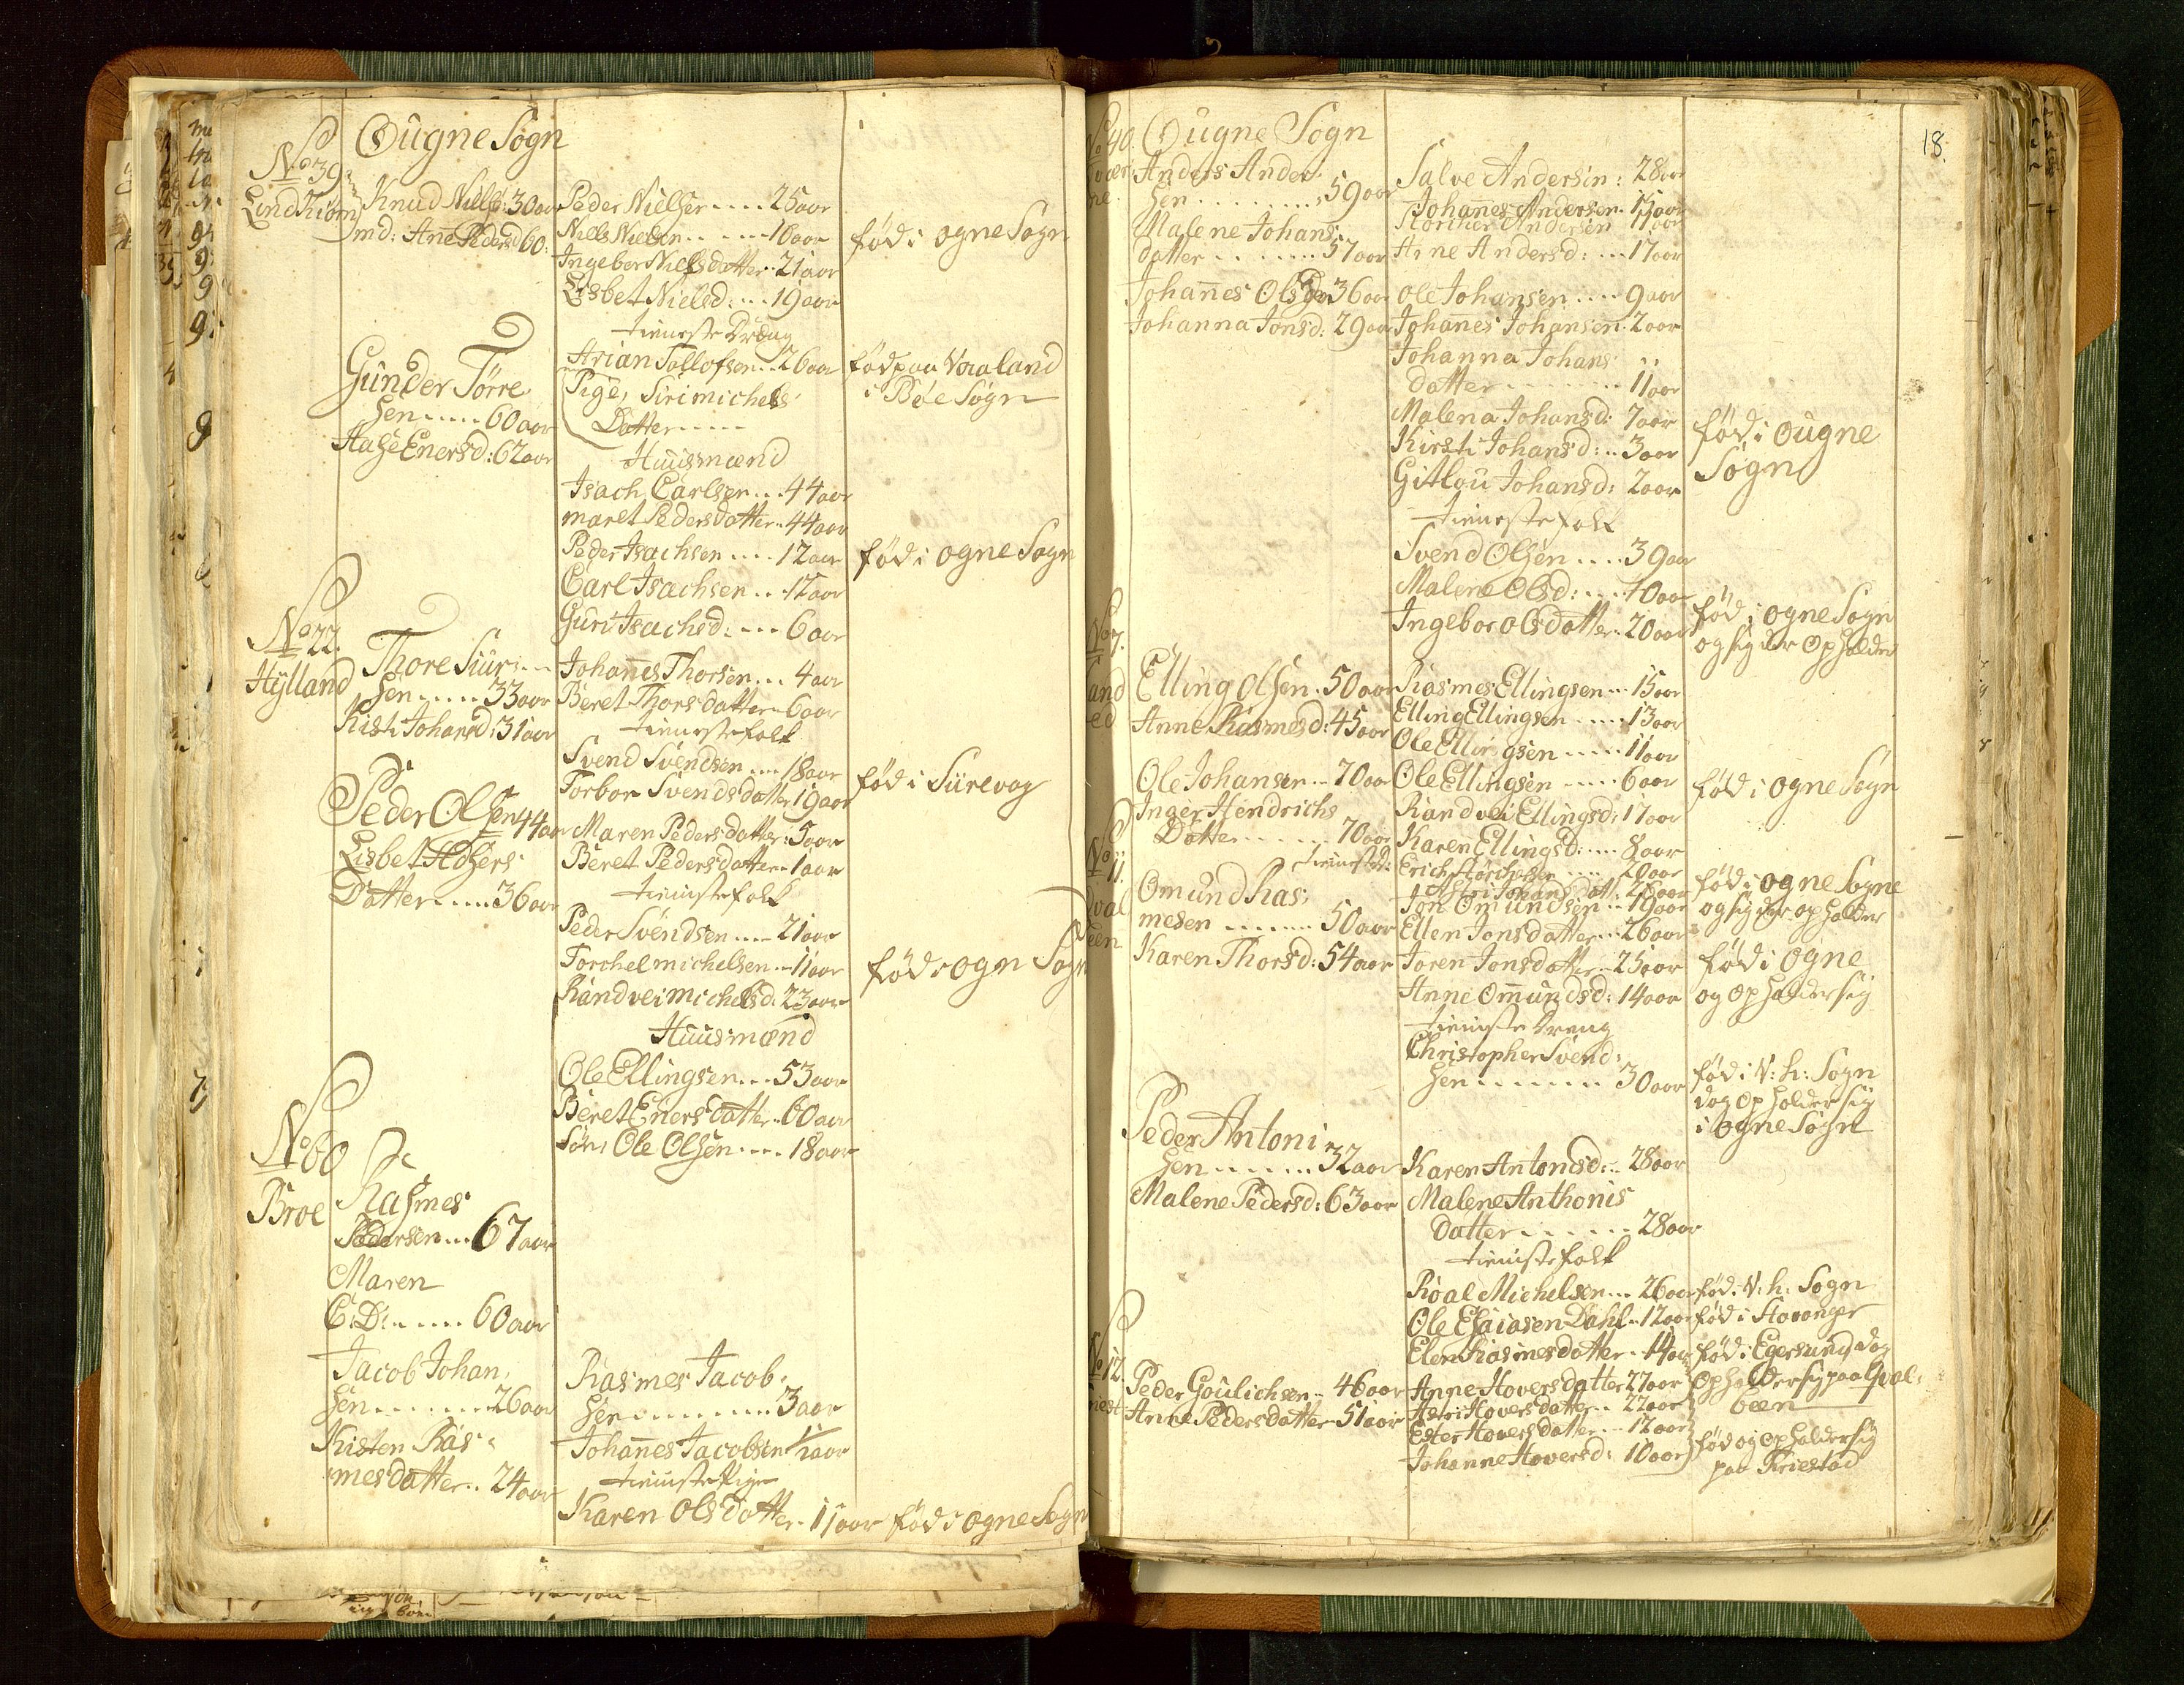 Ougne Sogn
No 39
Lindkiørn
Knud Nielss: 30 aar
md: Añe Pedersd 60:
Peder Nielsen .... 25 aar
Niels Nielsen ...... 10 aar
Ingebor Nielsdatter .. 21 aar
Lisbet Nielsd: .... 19 aar
fød i ogne Sogn
tieneste Dreng
Gunder Tørre
sen .... 60 aar
Aase Enersd: 62 aar
Arian Tollofsen .. 26 aar
Pige, Siri michels
Datter .....
fød paa Vraaland
i Bøe Sogn
Huusmænd
Isach Carlsen ... 44 aar
maret Pedersdatter .. 44 aar
Peder Isachsen .... 12 aar
Carl Isachsen ...
Guri Isachsd: .... 6 aar
fød i ogne Sogn
No 22.
Hÿlland
Thore Siur
sen ..... 33 aar
Kisti Johansd: 31 aar
Johañes Thorsen ... 4 aar
Beret Thorsdatter .. 6 aar
tieneste folk
Svend Svendsen .... 18 aar
Torbor Svendsdatter 19 aar
fød i Sirevog
Peder Olsen 44 aar
Lisbet
Datter ..... 36 aar
Maren Pedersdatter: 5 aar
Beret Pedersdatter .. 1 aar
tieneste folk
Peder Svendsen .... 21 aar
Torchel michelsen .. 11 aar
Randvei michelsd. 23 aar
fød i ogn Sogn
Huusmænd
Ole Ellingsen ... 53 aar
Beret Enersdatter .. 60 aar
Søn, Ole Olsen .... 18 aar
No 60
Broe
Rasmes
Pedersen ... 67 aar
Maren
E: D: ..... 60 aar
Jacob Johan,
sen ........ 26 aar
Kisten Ras
mesdatter .. 24 aar
Rasmes Jacob:
sen ......... 3 aar
Johañes Jacobsen 1/2 aar
tieneste Pige
Karen Olsdatter .. 17 aar fød i ogne Sogn
18.
No 40. Ougne Sogn
Anders Ander
sen ........ 59 aar
Malene Johans
datter ....... 57 aar
Johañes Olsen 36 aar
Johanna Jonsd: 29 aar
Salve Andersen: 28 aar
Johañes Andersen. 15 aar
Storcher Andersen 11 aar
Arne Andersd: ... 17 aar
Ole Johansen .... 9 aar
Johañes Johansen. 2 aar
Johanna Johans
datter ........ 11 aar
Malena Johansd: 7 aar
Kirsti Johansd: .. 3 aar
Gitlou Johansd: 2 aar
fød i ougne
Sogn
tieneste folk
Svend Olsen .... 39 aar
Malene Olsd: ....
Ingebor olsdatter .. 20 aar
fød i ogne Sogn
og sig der opholder
No 7.
Elling Olsen. 50 aar
Anne Rasmesd: 45 aar
Ole Johansen ... 70 aar
Inger Hendrichs
Datter ....... 70 aar
Rasmes Ellingsen ... 15 aar
Elling Ellingsen ..... 13 aar
Ole Ellingsen ..... 11 aar
Ole Ellingsen ..... 6 aar
Randvei Ellingsd: 17 aar
Karen Ellingsd: .... 8 aar
fød i ogne Sogn
No 11.
tieneste:
Erich Storchersen ..... 20 aar
Astri Johansdatt: 26 aar
fød i ogne Sogne
og sig der opholder
Omund Ras,
mesen ....... 50 aar
Karen Thorsd: 54 aar
Jon Omundsen ... 19 aar
Ellen Jonsdatter ... 26 aar
Joren Jonsdatter .. 25 aar
Anne Omundsd: 14 aar
fød i ogne
og opholder sig
tieneste dreng
Christopher Svend:
sen ....... 30 aar
fød i V: h: Sogn
dog opholder sig
i ogne Sogn
Peder Antoni
sen ....... 32 aar
Malene Pedersd: 63 aar
Karen Antonisd: .. 28 aar
Malene Anthonis
datter ....... 28 aar
tieneste folk
Roal Michelsen ... 26 aar fød. V: h: Sogn
Ole Esaiasen Dahl .. 12 aar fød i Stavanger
Elen Rasmesdatter . 14 aar fød i Egersund dog
opholder sig paa Qval:
been
No 12.
Peder Goulichsen .. 46 aar
Anne Pedersdatter 51 aar
Anne Hoversdatter 27 aar
Astri Hoversdatter .. 22 aar
Ester Hoversdatter .. 12 aar
Johanne Hoversd: 10 aar
fød og opholder sig
paa Kriestad